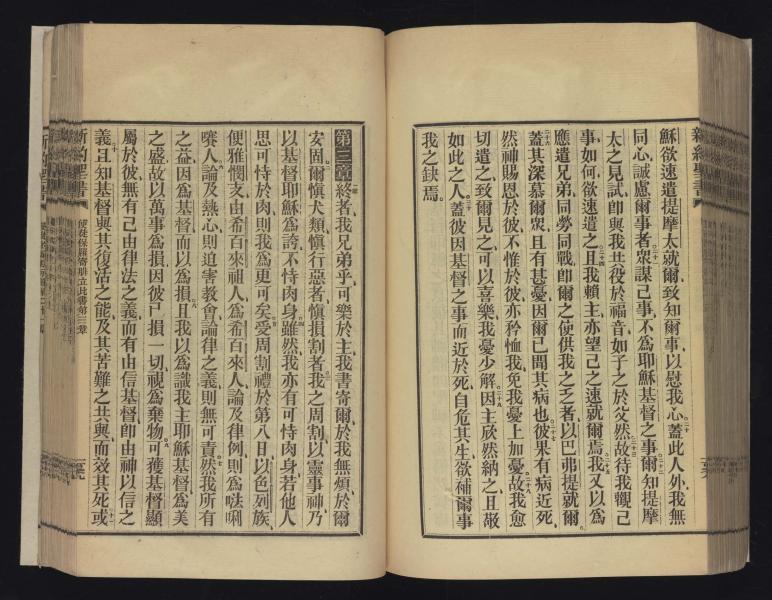 新約聖書
穌欲速遣提摩太就爾致知爾事以慰我心蓋此人外我無
同心誠慮爾事者衆謀己事不爲耶穌基督之事爾知提摩
太之見試卽與我共役於福音如子之於父然故待我觀己
事如何欲速遣之且我賴主亦望己之速就爾焉我又以爲
應遣兄弟同勞同戰卽爾之使供我之乏者以巴弗提就爾
蓋其深慕爾衆且有甚憂因爾已聞其病也彼果有病近死
然神賜恩於彼不惟於彼亦矜恤我免我憂上加憂故我愈
切遣之致爾見之可以喜樂我憂少解因主欣然納之且敬
如此之人蓋彼因基督之事而近於死自危其生欲補爾事
我之缺焉
第三章終者我兄弟乎可樂於主我書寄爾於我無煩於爾
安固爾愼犬類愼行惡者愼損割者我之周割以靈事神乃
以基督耶穌爲誇不恃肉身雖然我亦有可恃肉身若他人
思可恃於肉則我爲更可矣受周割禮於第八日以色列族
便雅憫支由希百來祖人爲希百來人論及律例則爲𠵽唎
㘔人論及熱心則迫害教會論律之義則無可責然我所有
之益因爲基督而以爲損且我以爲識我主耶穌基督爲美
之盛故以萬事爲損因彼已損一切視爲棄物可獲基督顯
屬於彼無有己由律法之義而有由信基督卽由神以信之
義且知基督與其復活之能及其苦難之共與而效其死或
新約聖書
使徒保羅寄腓立比書第三章